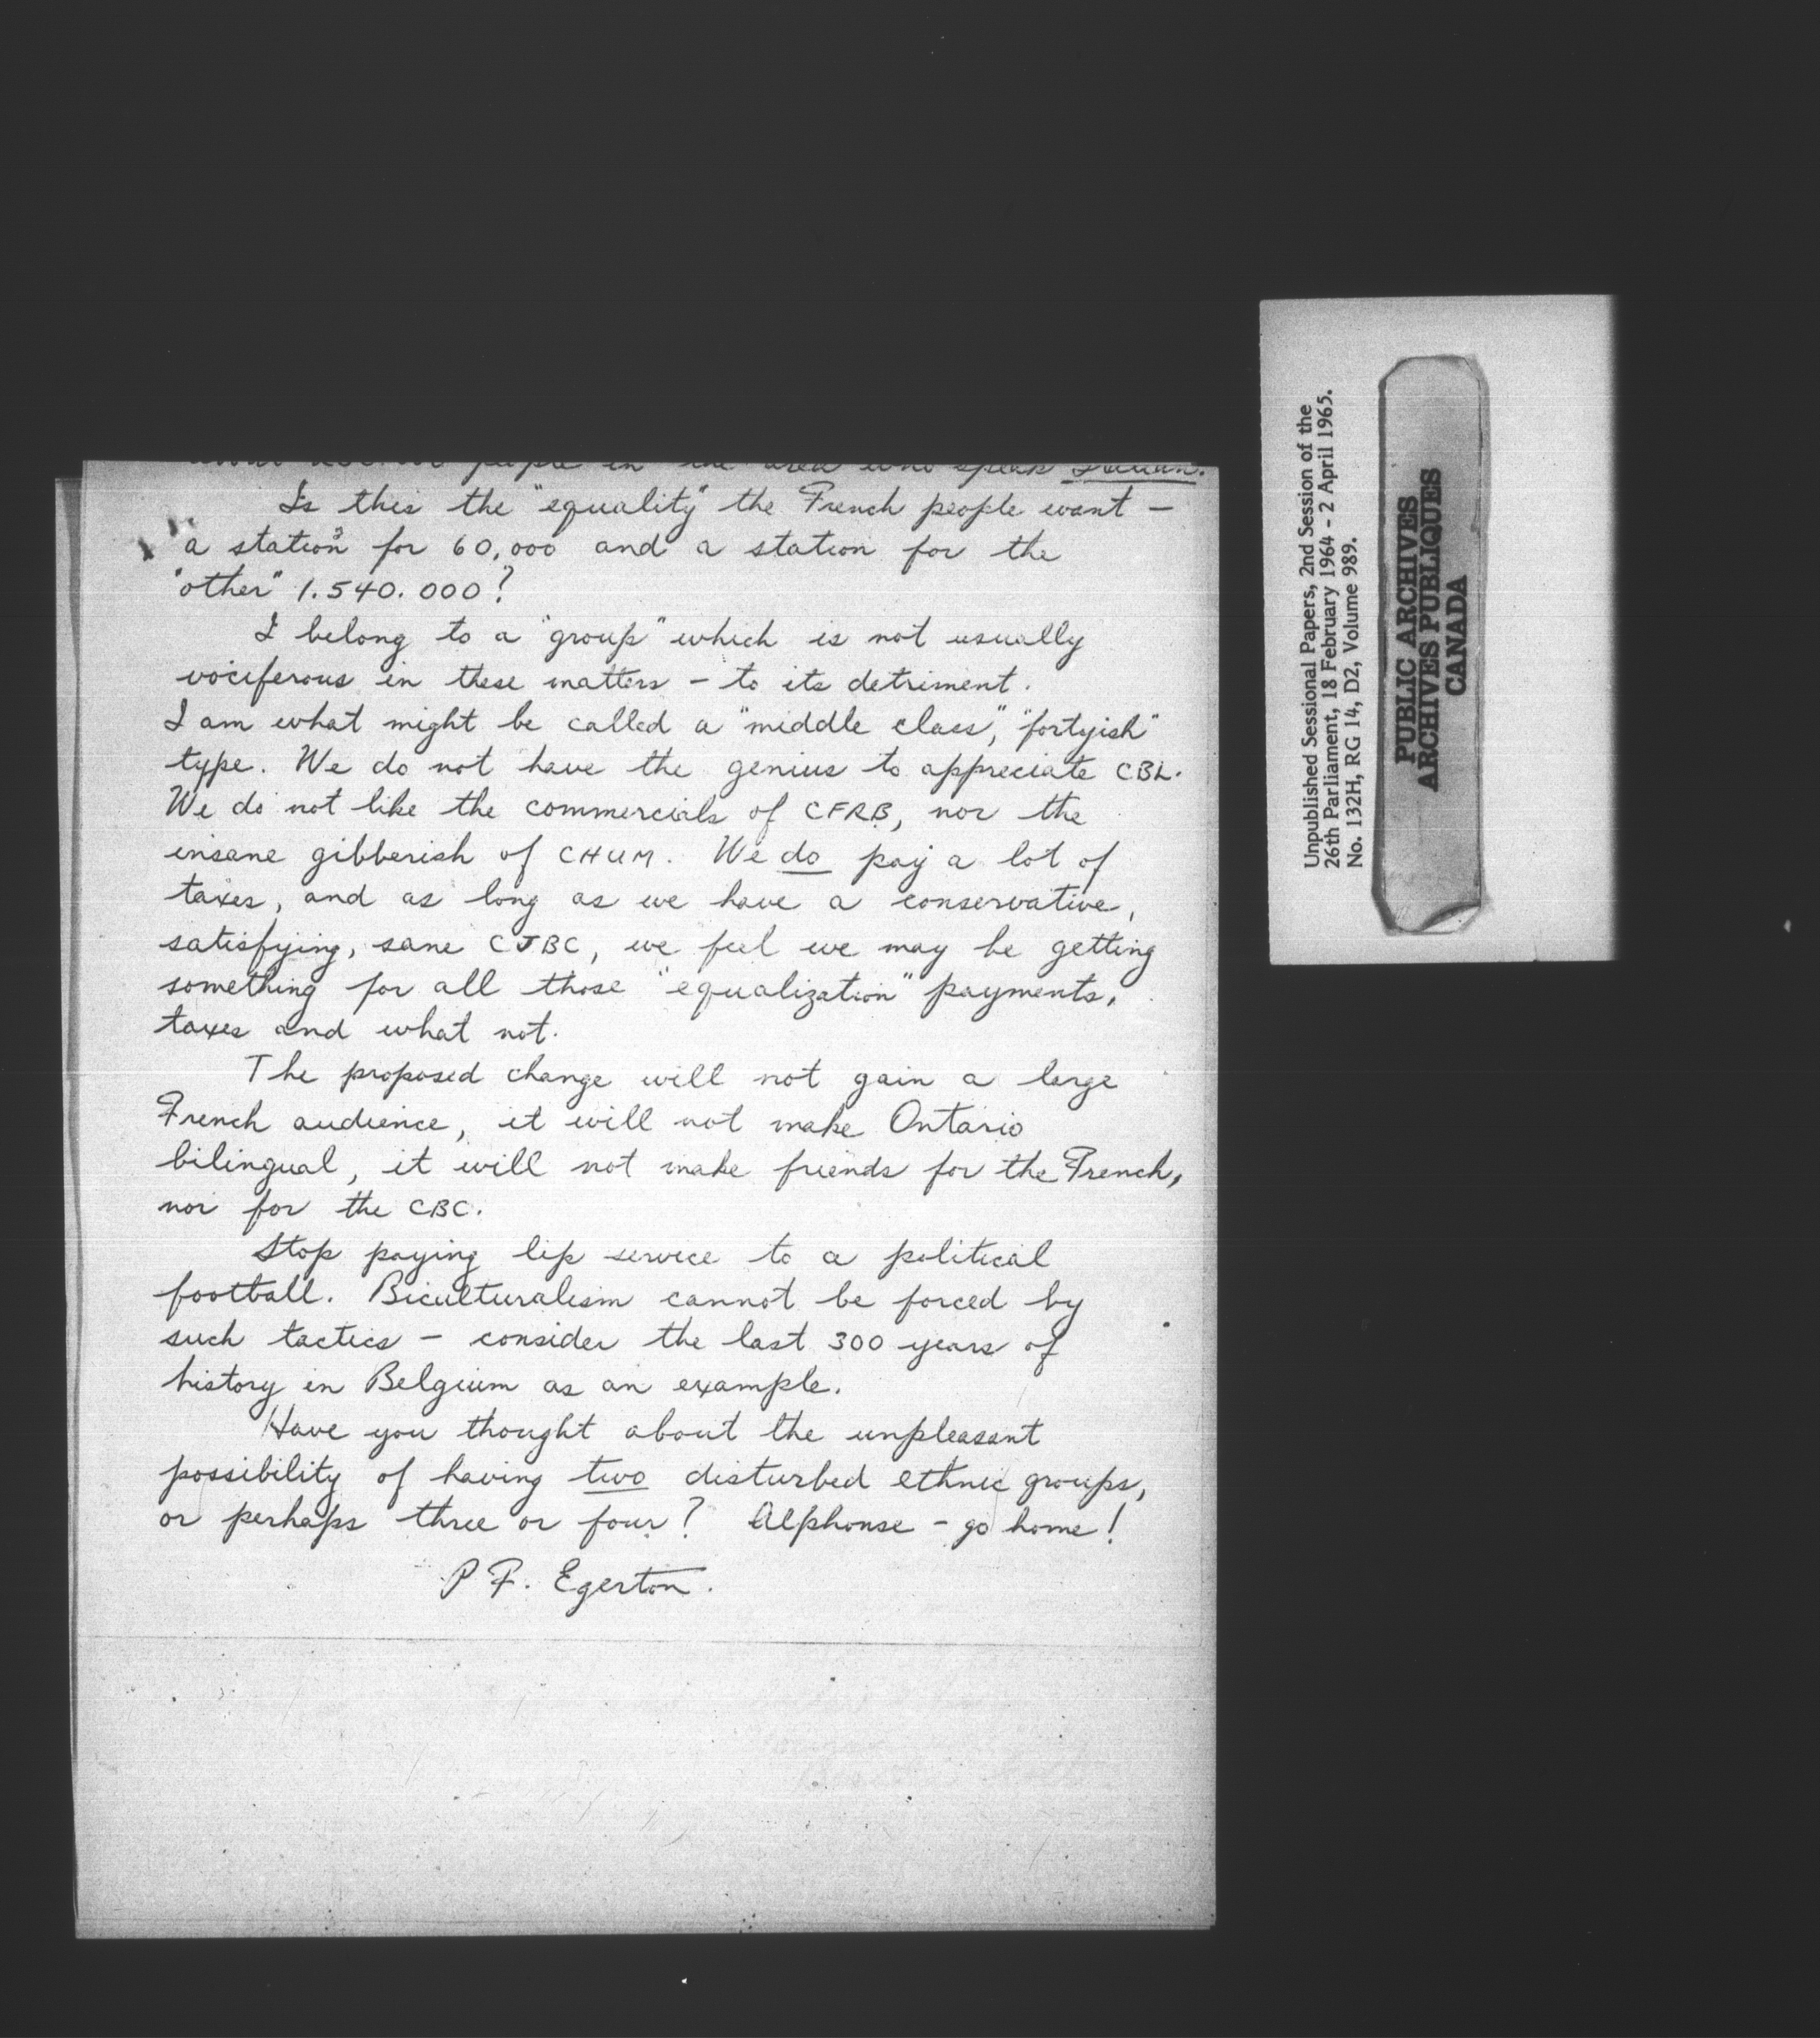 people in the area who speak Italian.
Is this the "equality" the French people want –
a station for 60,000 and a station for the
"other" 1.540.000?
I belong to a "group" which is not usually
vociferous in these matters – to its detriment.
I am what might be called a "middle class", "fortyish"
type. We do not have the genius to appreciate CBL.
We do not like the commercials of CFRB, nor the
insane gibberish of CHUM. We do pay a lot of
taxes, and as long as we have a conservative,
satisfying, sane CJBC, we feel we may be getting
something for all those "equalization" payments,
taxes and what not.
The proposed change will not gain a large
French audience, it will not make Ontario
bilingual, it will not make friends for the French,
nor for the CBC.
Stop paying lip service to a political
football. Biculturalism cannot be forced by
such tactics – consider the last 300 years of
history in Belgium as an example.
Have you thought about the unpleasant
possibility of having two disturbed ethnic groups,
or perhaps three or four? Alphonse – go home!
P F. Egerton.
Unpublished Sessional Papers, 2nd Session of the
26th Parliament, 18 February 1964 - 2 April 1965.
No. 132H, RG 14, D2, Volume 989.
PUBLIC ARCHIVES
ARCHIVES PUBLIQUES
CANADA